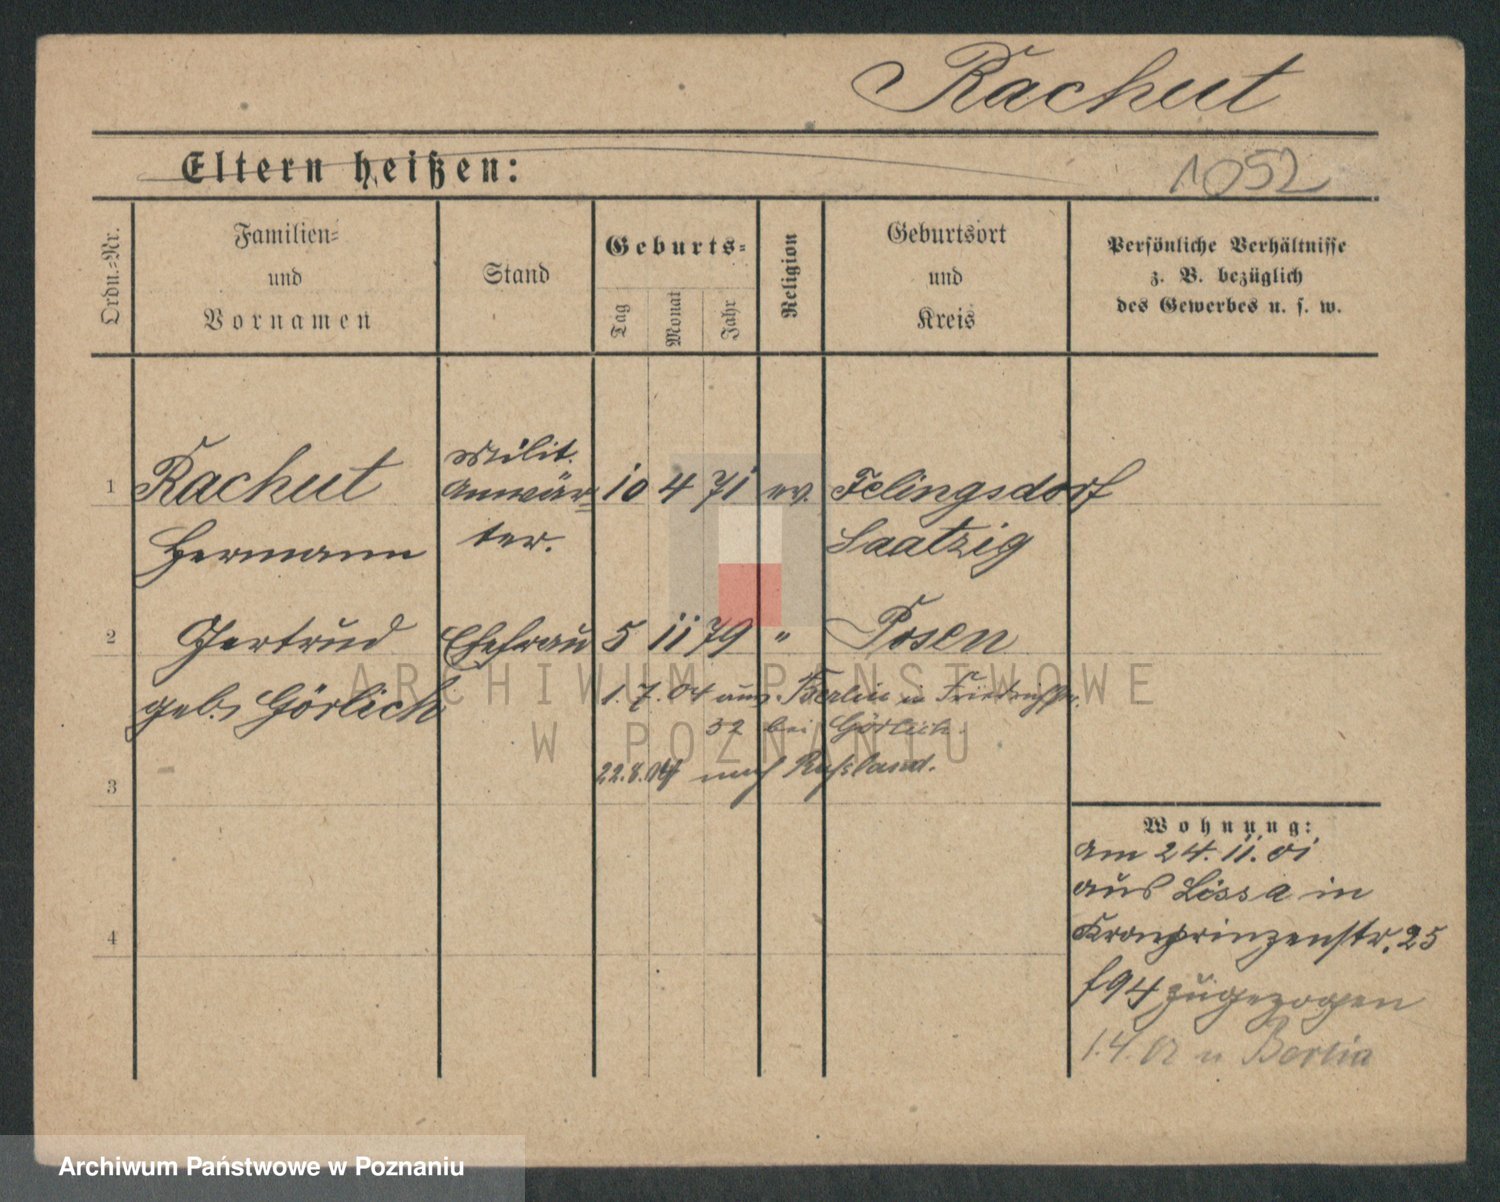 Rachut
Eltern heißen:
1052
Ordn.-Nr.
Familien-
und
Vornamen
Stand
Geburts-
Tag
Monat
Jahr
Religion
Geburtsort
und
Kreis
Persönliche Verhältnisse
z. B. bezüglich
des Gewerbes u. s. w.
1
Rachut
Hermann
Milit.
Anwär-
ter.
10 4 71 ev. Felingsdorf
Saatzig
2
Gertrud
geb. Görlich
Ehefrau
5 11 79 " Posen
1. 7. 04 aus Berlin n
52 bei Görlich.
22.8.04 nach Rußland.
3
4
Wohnung:
am 24. 11. 01
aus Lissa in
Kronprinzenstr. 25
f94 zugezogen
1.4.02 n Berlin
ARCHIWUM PAŃSTWOWE
W POZNANIU
Archiwum Państwowe w Poznaniu